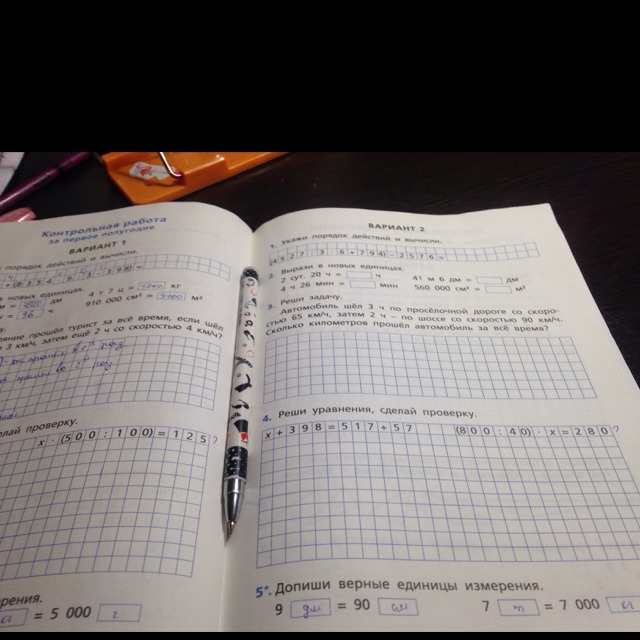 Контрольная работа
за первое полугодие
ВАРИАНТ 1
порядок действий и вычисли.
в новых единицах.
дм 4 т 7 ц = кг
ч = 96 ч 910 000 см² = м²
яние прошёл турист за всё время, если шёл
3 км/ч, затем ещё 2 ч со скоростью 4 км/ч?
делай проверку.
x · (500 : 100) = 125?
рения.
= 5 000 г
ВАРИАНТ 2
1. Укажи порядок действий и вычисли.
2. Вырази в новых единицах.
2 сут. 20 ч = ч 41 м 6 дм = дм
4 ч 26 мин = мин 560 000 см² = м²
3. Реши задачу.
Автомобиль шёл 3 ч по просёлочной дороге со скоро-
стью 65 км/ч, затем 2 ч – по шоссе со скоростью 90 км/ч.
Сколько километров прошёл автомобиль за всё время?
4. Реши уравнения, сделай проверку.
x + 398 = 517 + 57 (800 : 40) · x = 280?
5*. Допиши верные единицы измерения.
9 дм = 90 см 7 т = 7 000 кг